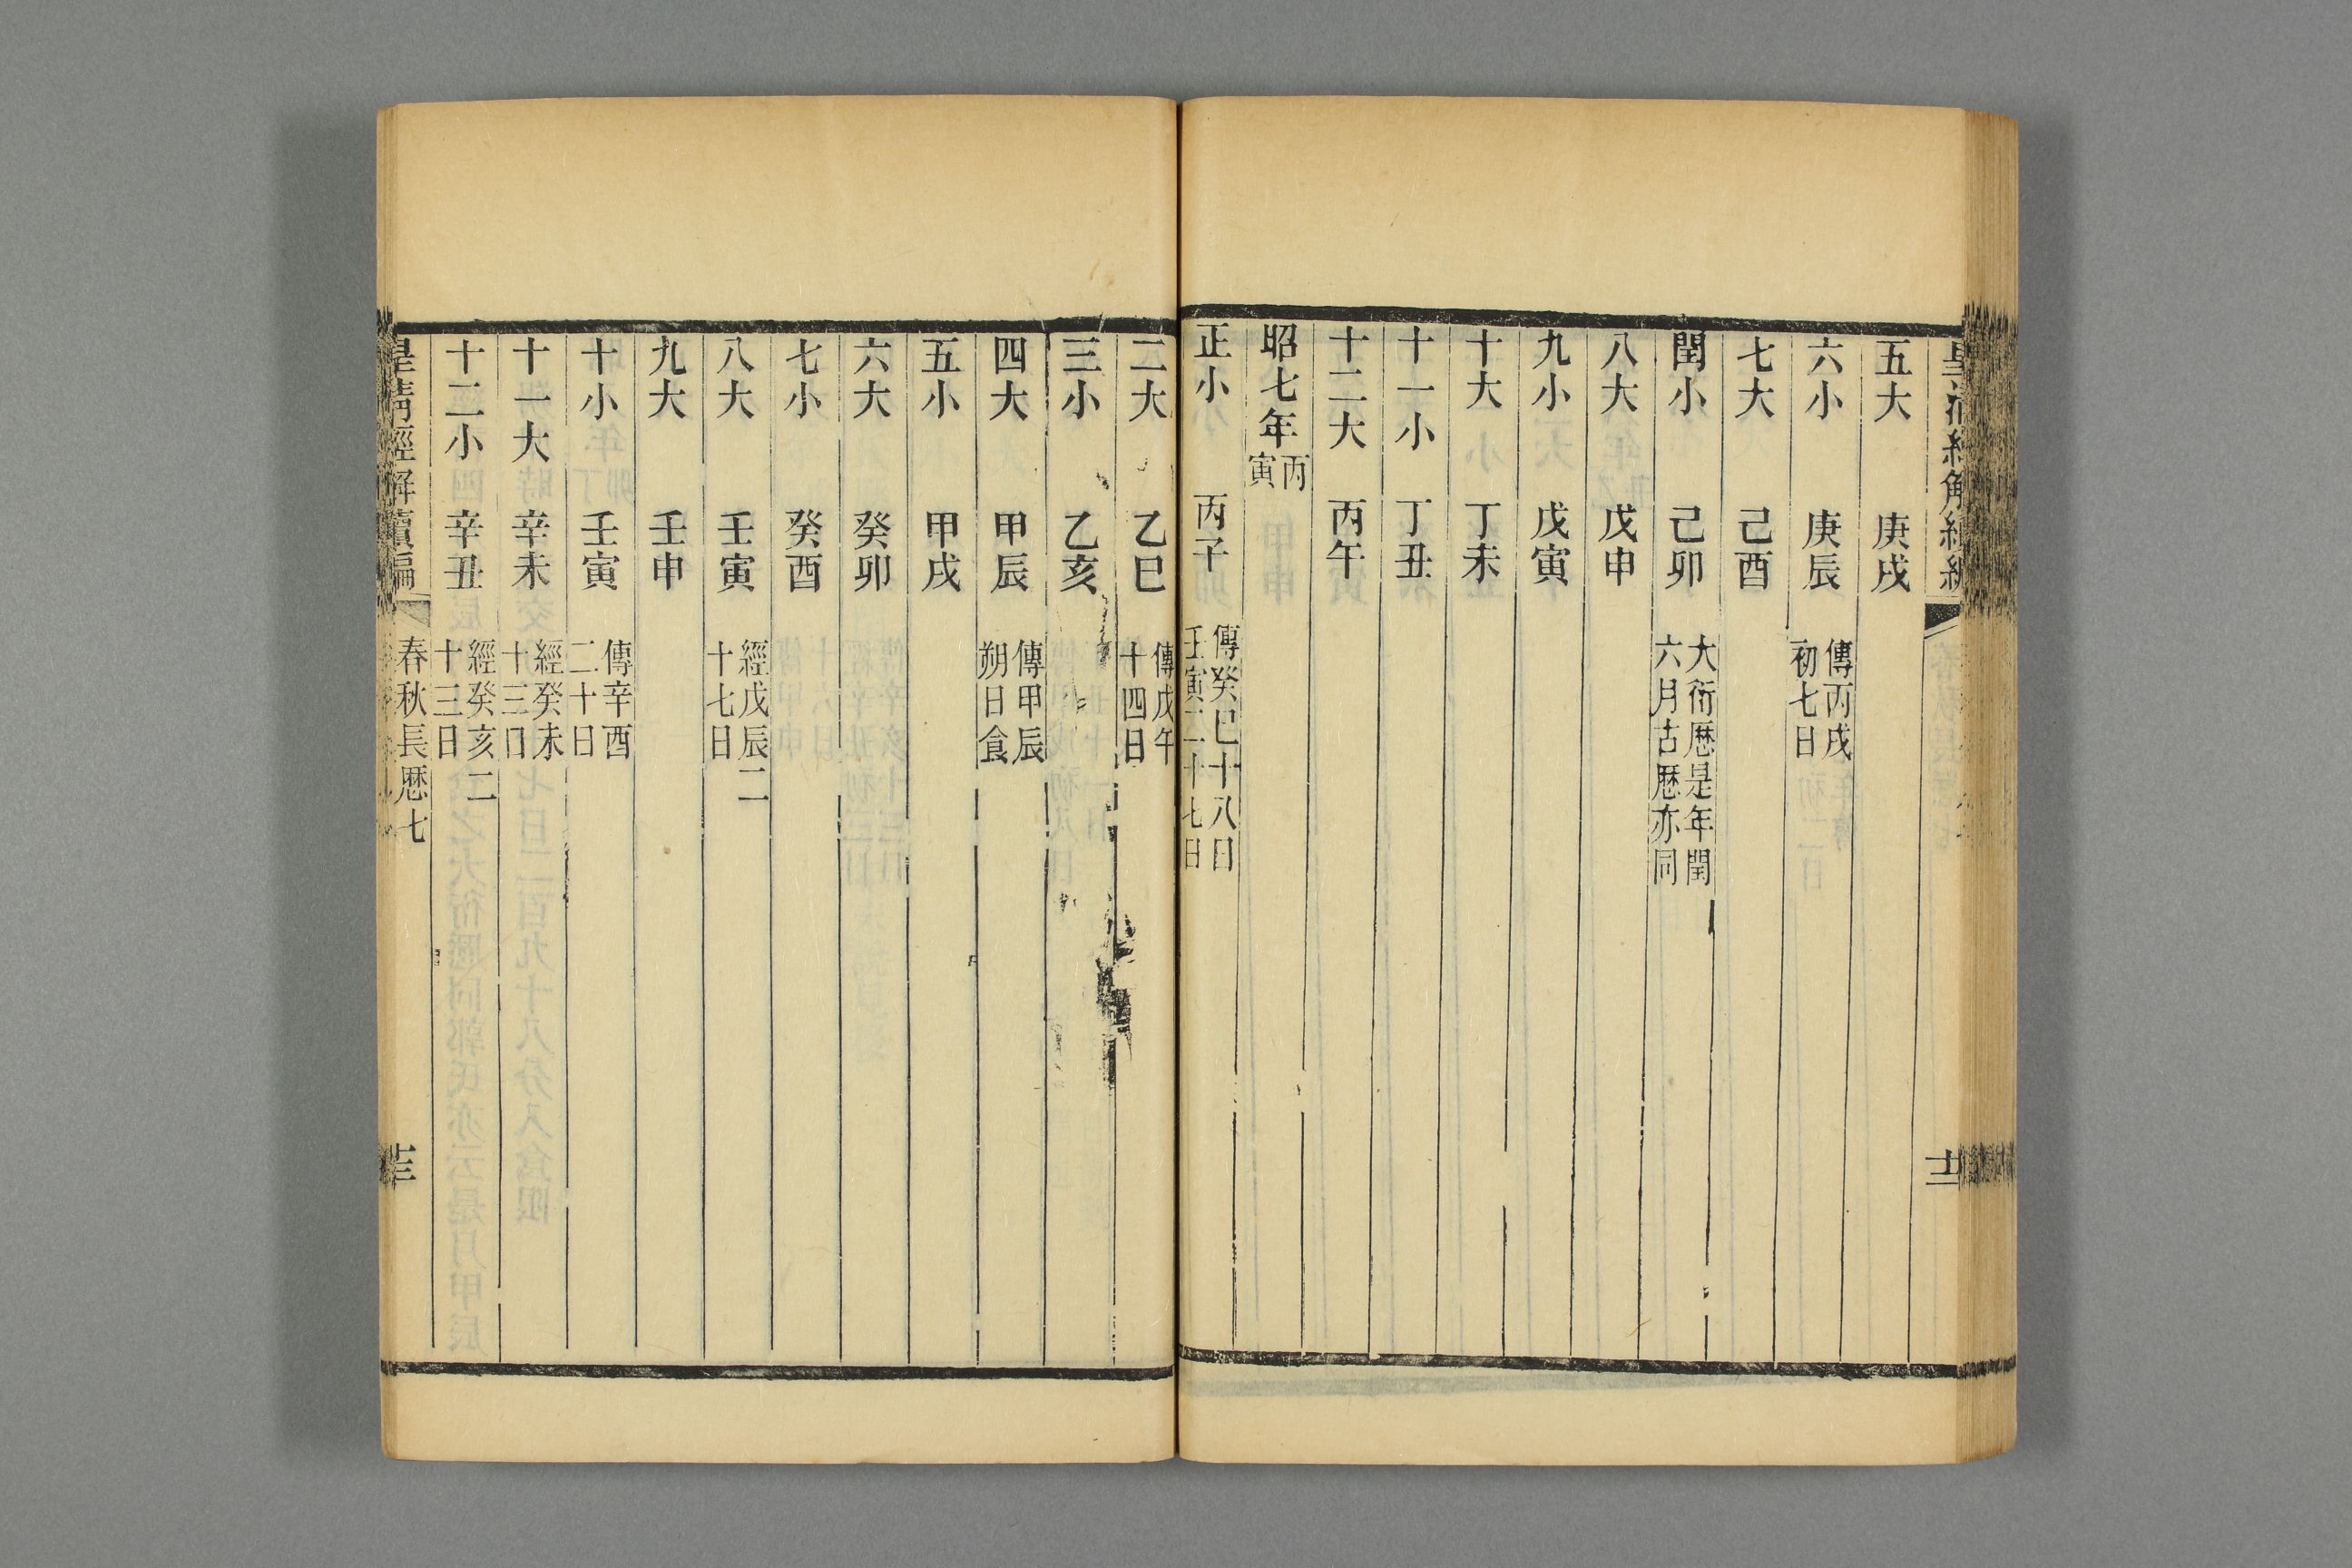 五大 庚戌
六小 庚辰 傳丙戌初七日
七大 己酉
閏小 己卯 大衍厯是年閏六月古厯亦同
八大 戊申
九小 戊寅
十大 丁未
十一小 丁丑
十二大 丙午
昭七年丙寅
正小 丙子 傳癸巳十八日壬寅二十七日
二大 乙巳 傳戊午十四日
三小 乙亥
四大 甲辰 傳甲辰朔日食
五小 甲戌
六大 癸卯
七小 癸酉
八大 壬寅 經戊辰二十七日
九大 壬申
十小 壬寅 傳辛酉二十日
十一大 辛未 經癸未十三日
十二小 辛丑 經癸亥二十三日
皇清經解續編 春秋長厯七